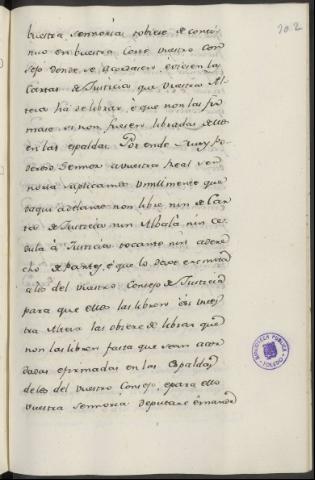 202
buestra Sennoria tobiese de conti-
nuo en buestra Corte vuestro Con
sejo donde se acordasen é viesen las
Cartas de Justicia que vuestra Al-
teza há de librar, é que non las fir
mase si non fuesen libradas de ellos
en las espaldas. Por ende Muy Po-
deroso Sennor a vuestra Real Sen
noria suplicamos vmillmente que
daqui adelante non libre nin de Car
ta de Justicia nin Albalá nin Ce-
dula á Justicia tocante nin a dere
cho de Partes, é que lo dexe é remita
a los del vuestro Consejo de Justicia
para que ellos las libren é si vues
tra Alteza las obiere de librar que
non las libren fasta que sean acor
dadas é firmadas en las espaldas
de los del vuestro Consejo, é para ello
vuestra Sennoria depute é mande
BIBLIOTECA PUBLICA
TOLEDO